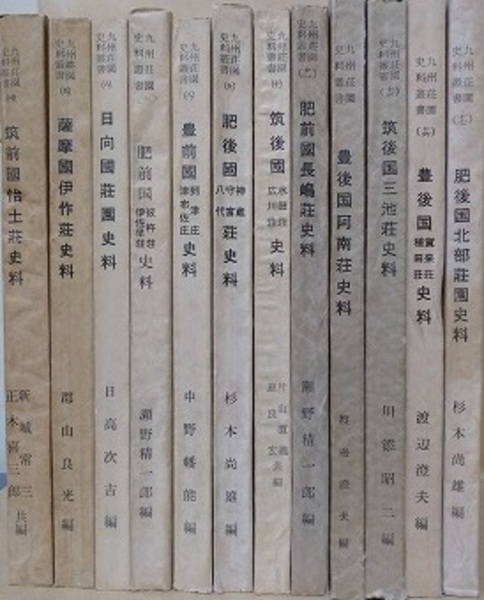 九州荘園
史料叢書
筑前國怡土莊史料
新城常三
正木喜三郎 共編
九州荘園
史料叢書
薩摩國伊作莊史料
郡山良光編
九州荘園
史料叢書
日向國莊園史料
日高次吉編
九州荘園
史料叢書
肥前国
彼杵荘
伊佐早荘
史料
瀬野精一郎編
九州荘園
史料叢書
豊前國
到津庄
津布佐庄
史料
中野幡能編
九州荘園
史料叢書
肥後國
神蔵
守富
八代
莊史料
杉本尚雄編
九州荘園
史料叢書
筑後國
水田荘
広川荘
史料
片山直義
恵良宏 共編
九州荘園
史料叢書
肥前國長嶋荘史料
瀬野精一郎編
九州荘園
史料叢書
豊後国阿南荘史料
渡邊澄夫編
九州荘園
史料叢書
筑後国三池荘史料
川添昭二編
九州荘園
史料叢書
豊後国
賀来荘
稙田荘
史料
渡辺澄夫編
九州荘園
史料叢書
肥後国北部荘園史料
杉本尚雄編